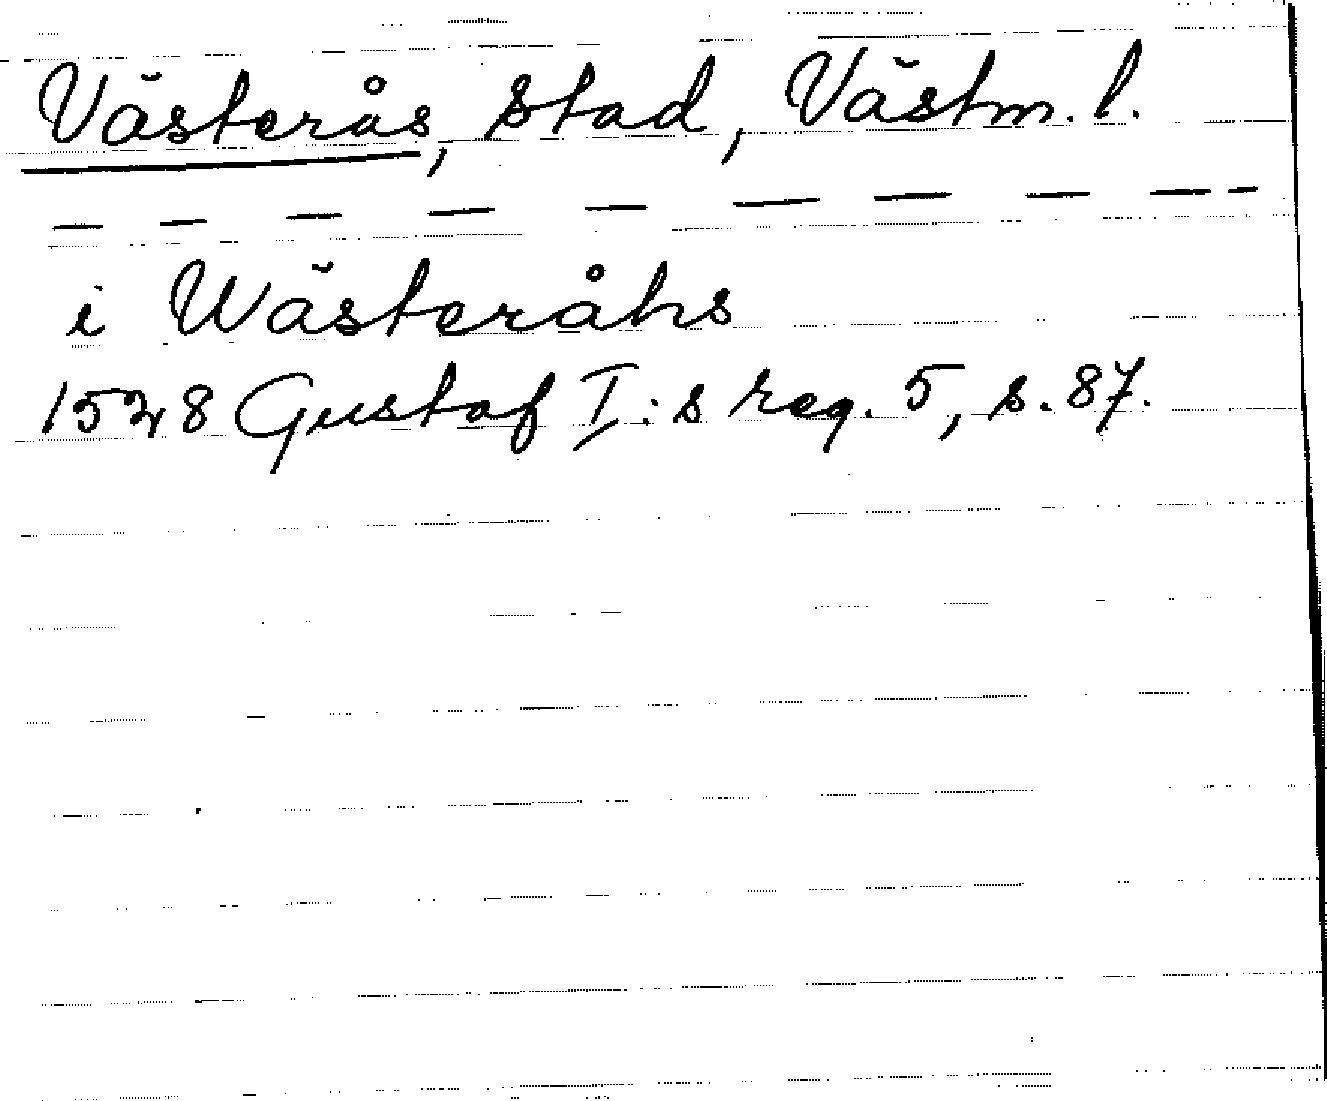 Västerås, stad, Västm. l.
i Wästeråhs
1528 Gustaf I:s reg. 5, s. 87.